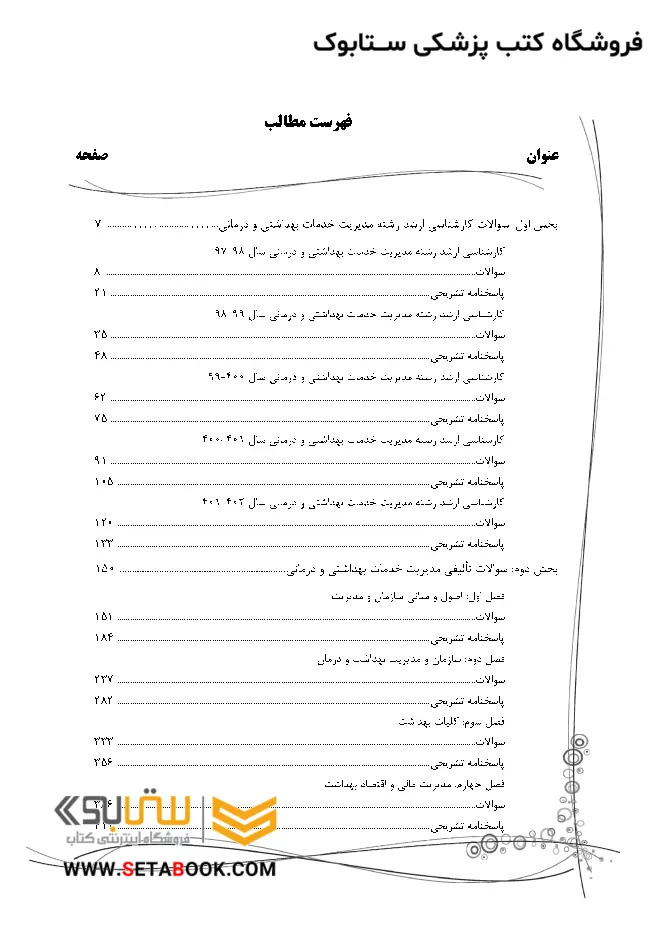 فروشگاه کتب پزشکی ستابوک
فهرست مطالب
عنوان صفحه
بخش اول: سوالات کارشناسی ارشد رشته مدیریت خدمات بهداشتی و درمانی ۷
کارشناسی ارشد رشته مدیریت خدمات بهداشتی و درمانی سال ۹۸-۹۷
سوالات ۸
پاسخنامه تشریحی ۲۱
کارشناسی ارشد رشته مدیریت خدمات بهداشتی و درمانی سال ۹۹-۹۸
سوالات ۳۵
پاسخنامه تشریحی ۴۸
کارشناسی ارشد رشته مدیریت خدمات بهداشتی و درمانی سال ۴۰۰-۹۹
سوالات ۶۲
پاسخنامه تشریحی ۷۵
کارشناسی ارشد رشته مدیریت خدمات بهداشتی و درمانی سال ۴۰۱-۴۰۰
سوالات ۹۱
پاسخنامه تشریحی ۱۰۵
کارشناسی ارشد رشته مدیریت خدمات بهداشتی و درمانی سال ۴۰۲-۴۰۱
سوالات ۱۲۰
پاسخنامه تشریحی ۱۳۳
بخش دوم: سوالات تألیفی مدیریت خدمات بهداشتی و درمانی ۱۵۰
فصل اول: اصول و مبانی سازمان و مدیریت
سوالات ۱۵۱
پاسخنامه تشریحی ۱۸۴
فصل دوم: سازمان و مدیریت بهداشت و درمان
سوالات ۲۳۷
پاسخنامه تشریحی ۲۸۲
فصل سوم: کلیات بهداشت
سوالات ۳۳۳
پاسخنامه تشریحی ۳۵۶
فصل چهارم: مدیریت مالی و اقتصاد بهداشت
سوالات
پاسخنامه تشریحی
ستابوک
فروشگاه اینترنتی کتاب
WWW.SETABOOK.COM